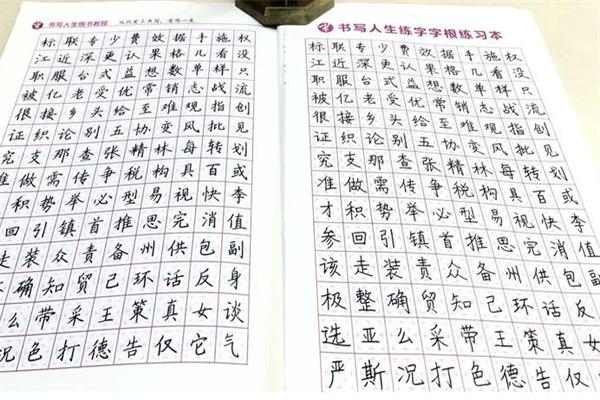 书写人生楷书教程
标联专少费效据手施权
江近深更认果格几看没
职服台式益想数单样只
被亿老受优常销志战流
很接乡头给至难观指创
证织论别五协变风批见
究支那查张精林每转划
准做需传争税构具百或
积势举必型易视快李
回引镇首推思完消值
走装众责备州供包副
确知贸己环话反身
么带采王策真女谈
况色打德告仅它气
书写人生练字字根练习本
标联专少费效据手施权
江近深更认果格几看没
职服台式益想数单样只
被亿老受优常销志战流
很接乡头给至难观指创
证织论别五协变风批见
究支那查张精林每转划
准做需传争税构具百或
才积势举必型易视快李
参回引镇首推思完消值
该走装责众备州供包副
极整确贸知己环话反
选亚么采带王策真女
严斯况打色德告仅